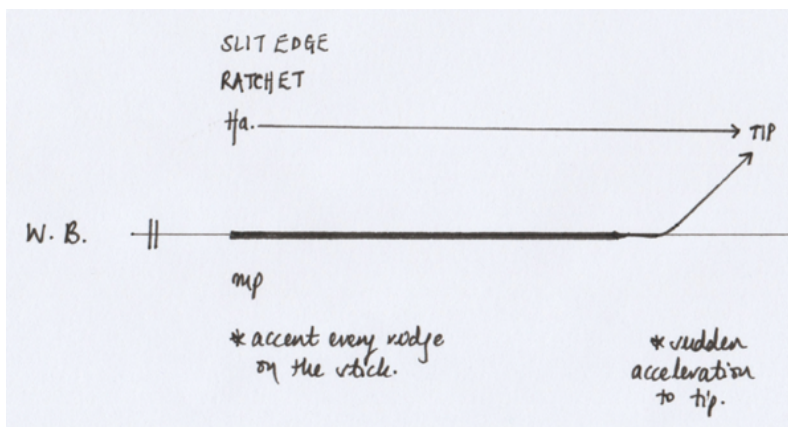 SLIT EDGE
RATCHET
Ha. TIP
W. B.
mp
* accent every ridge
on the stick.
* sudden
acceleration
to tip.